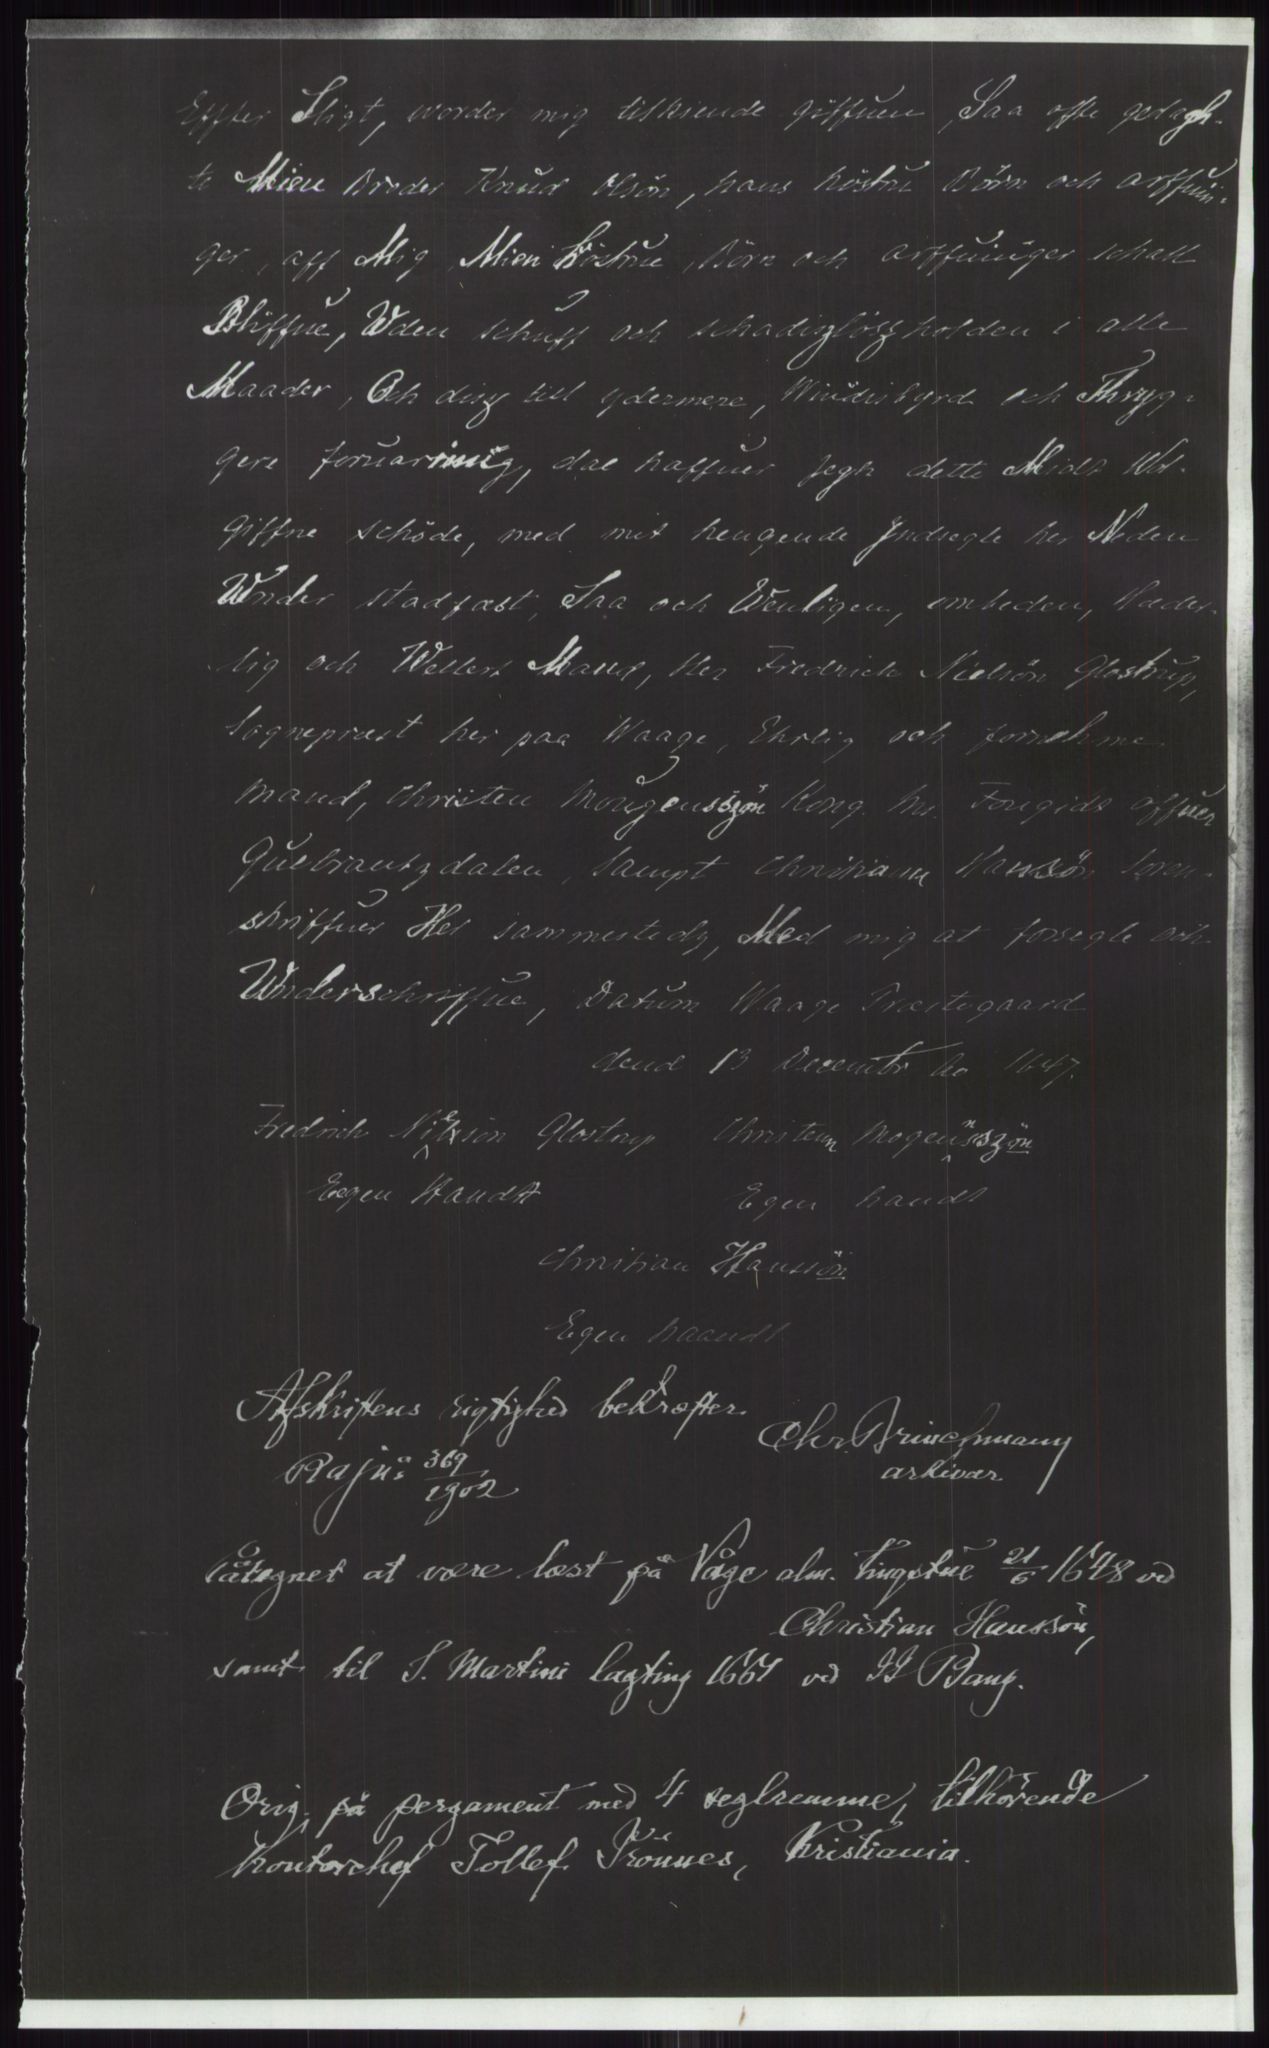 Effter Sligt, vorder mig tilkiende giffuen, Saa offte
te Mien broder Knud Olsön, hans höstru Börn och arffuin-
ger, aff Mig Mien höstrue, Börn och arffuinger schall
Bliffue, Uden schuff och schadizlösz holden i alle
Maader, Och disz till ydermere, Windisbyrd och Thryg-
gere foruaring, da haffuer Jegh dette Midt Ud-
giffne schöde, med mit hengende Indsegle her Neden
Wnder stadfæst, Saa och Wenligen, ombeden, Hæder-
lig och Wellert Mand, Her Fredrich Nielsön Glostrup,
Sognepræst her paa Waage, Ehrlig och fornehme
Mand, Christen Mougensszön Kong. M. Fougidt öffuer
Guelbrantzdalen, Sampt Christiann Hanssön Soren-
skriffuer Her sammestedz, Med mig at forsegle och
Wnderschriffue, Datum Waage Præstegaard
dend 13 Decembr Ao 1647.
Fredrich Nielssön Glostrup Christenn Mogennsszön
Egen Handtt Egen handt
Christian Hanssön
Egen haandt
Afskriftens rigtighed bekræfter.
Chr. Brinchmann
Rajn: 369/1902 arkivar
Påtegnet at være læst på Våge alm. tingstue 21/6 1648 ved
Christian Hanssön,
samt til S. Martini lagting 1661 ved JJ Bang.
Orig. på pergament med 4 seglremme, tilhörende
kontorchef Tollef Prönnes, Kristiania.